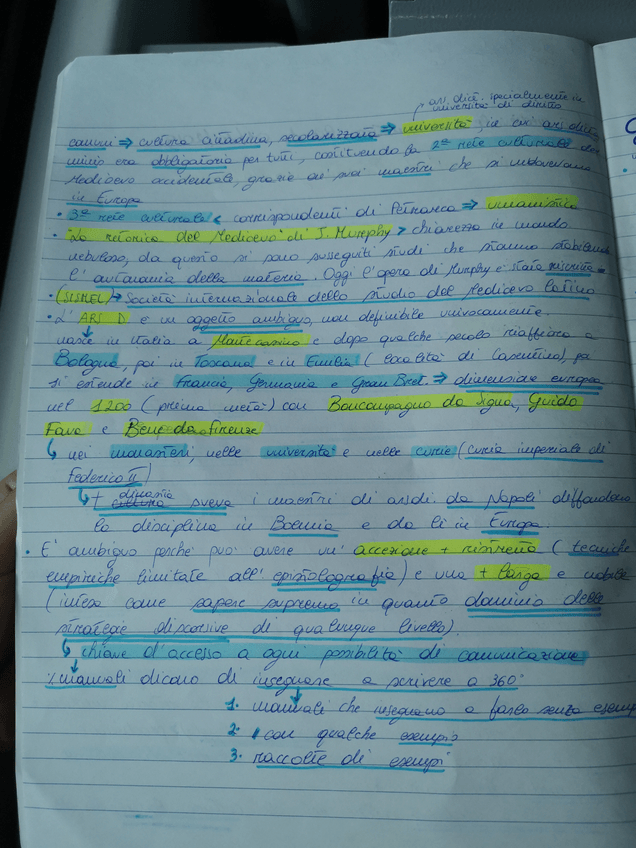 ars dict. specialmente in
università di diritto
comuni ⇒ cultura cittadina, secolarizzata ⇒ università, in cui ars dicta
minis era obbligatoria per tutti, costituendo la 2ª rete culturale del
Medioevo occidentale, grazie ai suoi maestri che si muovevano
in Europa
• 3ª rete culturale < corrispondenti di Petrarca ⇒ umanista
• "La retorica del Medioevo" di J. Murphy > chiarezza in mondo
nebuloso, da questo si sono susseguiti studi che stanno stabilendo
l'autonomia della materia. Oggi l'opera di Murphy è stata
• (SISMEL) → Società internazionale dello studio del Medioevo latino
• L'ARS D. è un oggetto ambiguo, non definibile univocamente.
nasce in Italia a Montecassino e dopo qualche secolo riaffiora a
Bologna, poi in Toscana e in Emilia (località di Casentino), poi
si estende in Francia, Germania e Gran Bret. ⇒ dimensione europea
nel 1200 (prima metà) con Boncompagno da Signa, Guido
Fava e Bene da Firenze
↳ nei monasteri, nelle università e nelle curie (curia imperiale di
Federico II)
dinastia
↳ † cultura sveva i maestri di ars di. da Napoli diffondono
la disciplina in Boemia e da lì in Europa.
• E' ambiguo perché può avere un' accezione + ristretta (tecniche
empiriche limitate all'epistolografia) e una + larga e nobile
(intesa come sapere supremo in quanto dominio delle
strategie discorsive di qualunque livello).
↳ chiave d'accesso a ogni possibilità di comunicazione
i manuali dicono di insegnare a scrivere a 360°
1. manuali che insegnano a farlo senza esempi
2. con qualche esempio
3. raccolte di esempi